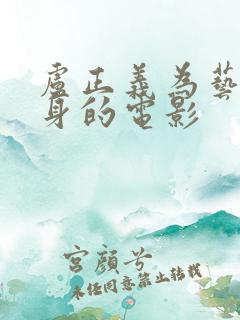 盧正義為藝
身的電影
宮顏兮
未经同意禁止转载